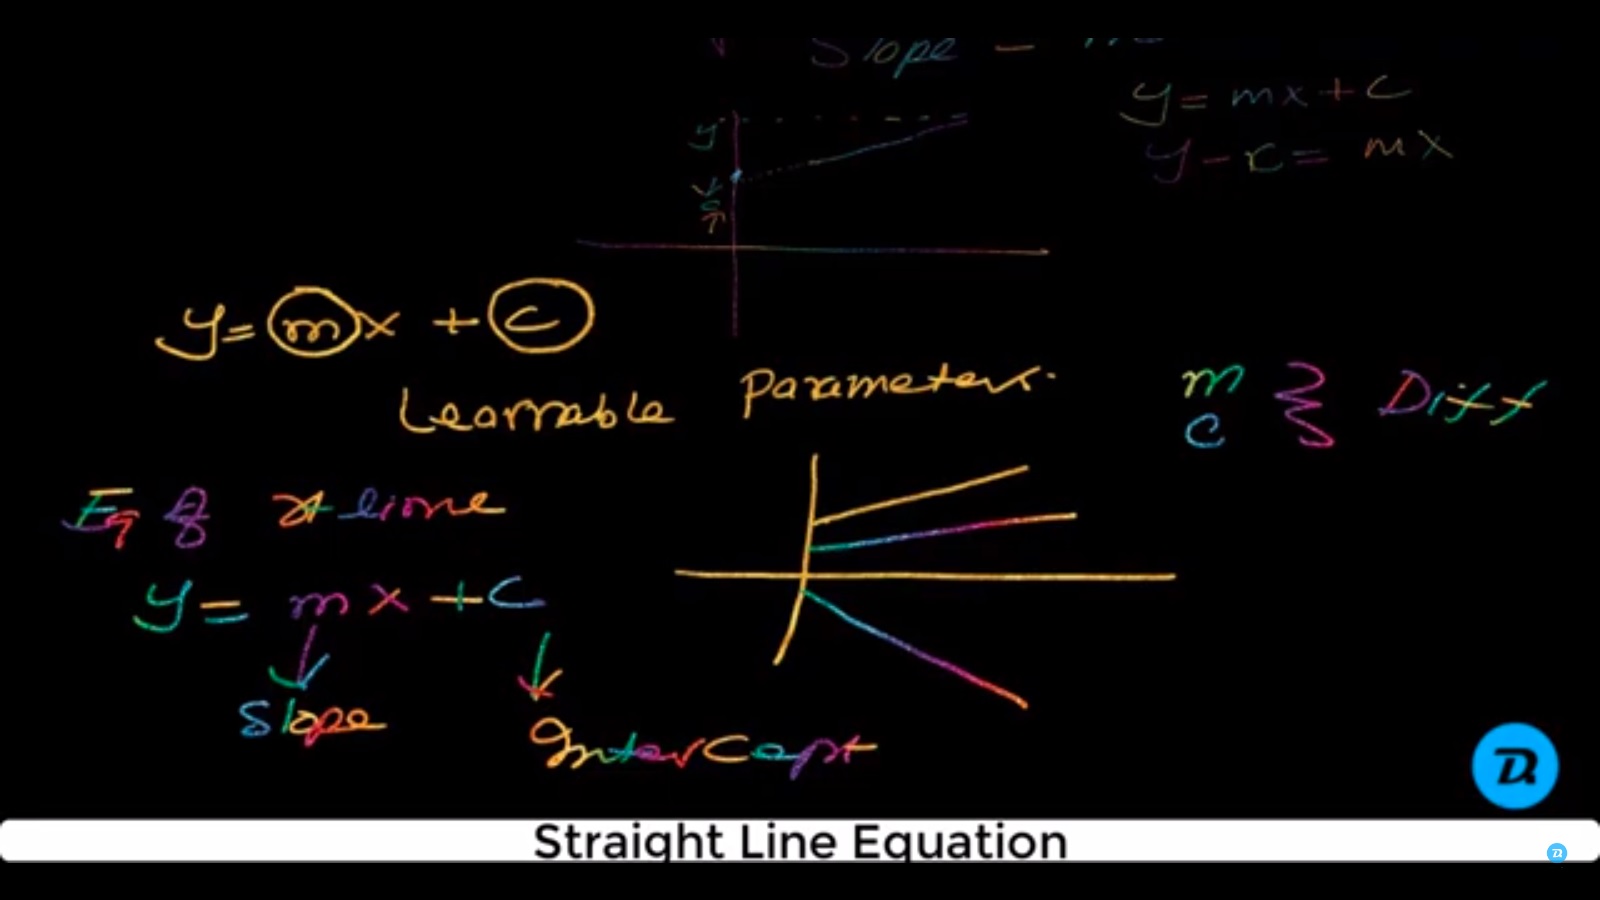 Slope =
y = mx + c
y - c = mx
y
c
y = mx + c
Learnable Parameters.
m
c } Diff
Eq of st line
y = mx + c
Slope
Intercept
Straight Line Equation